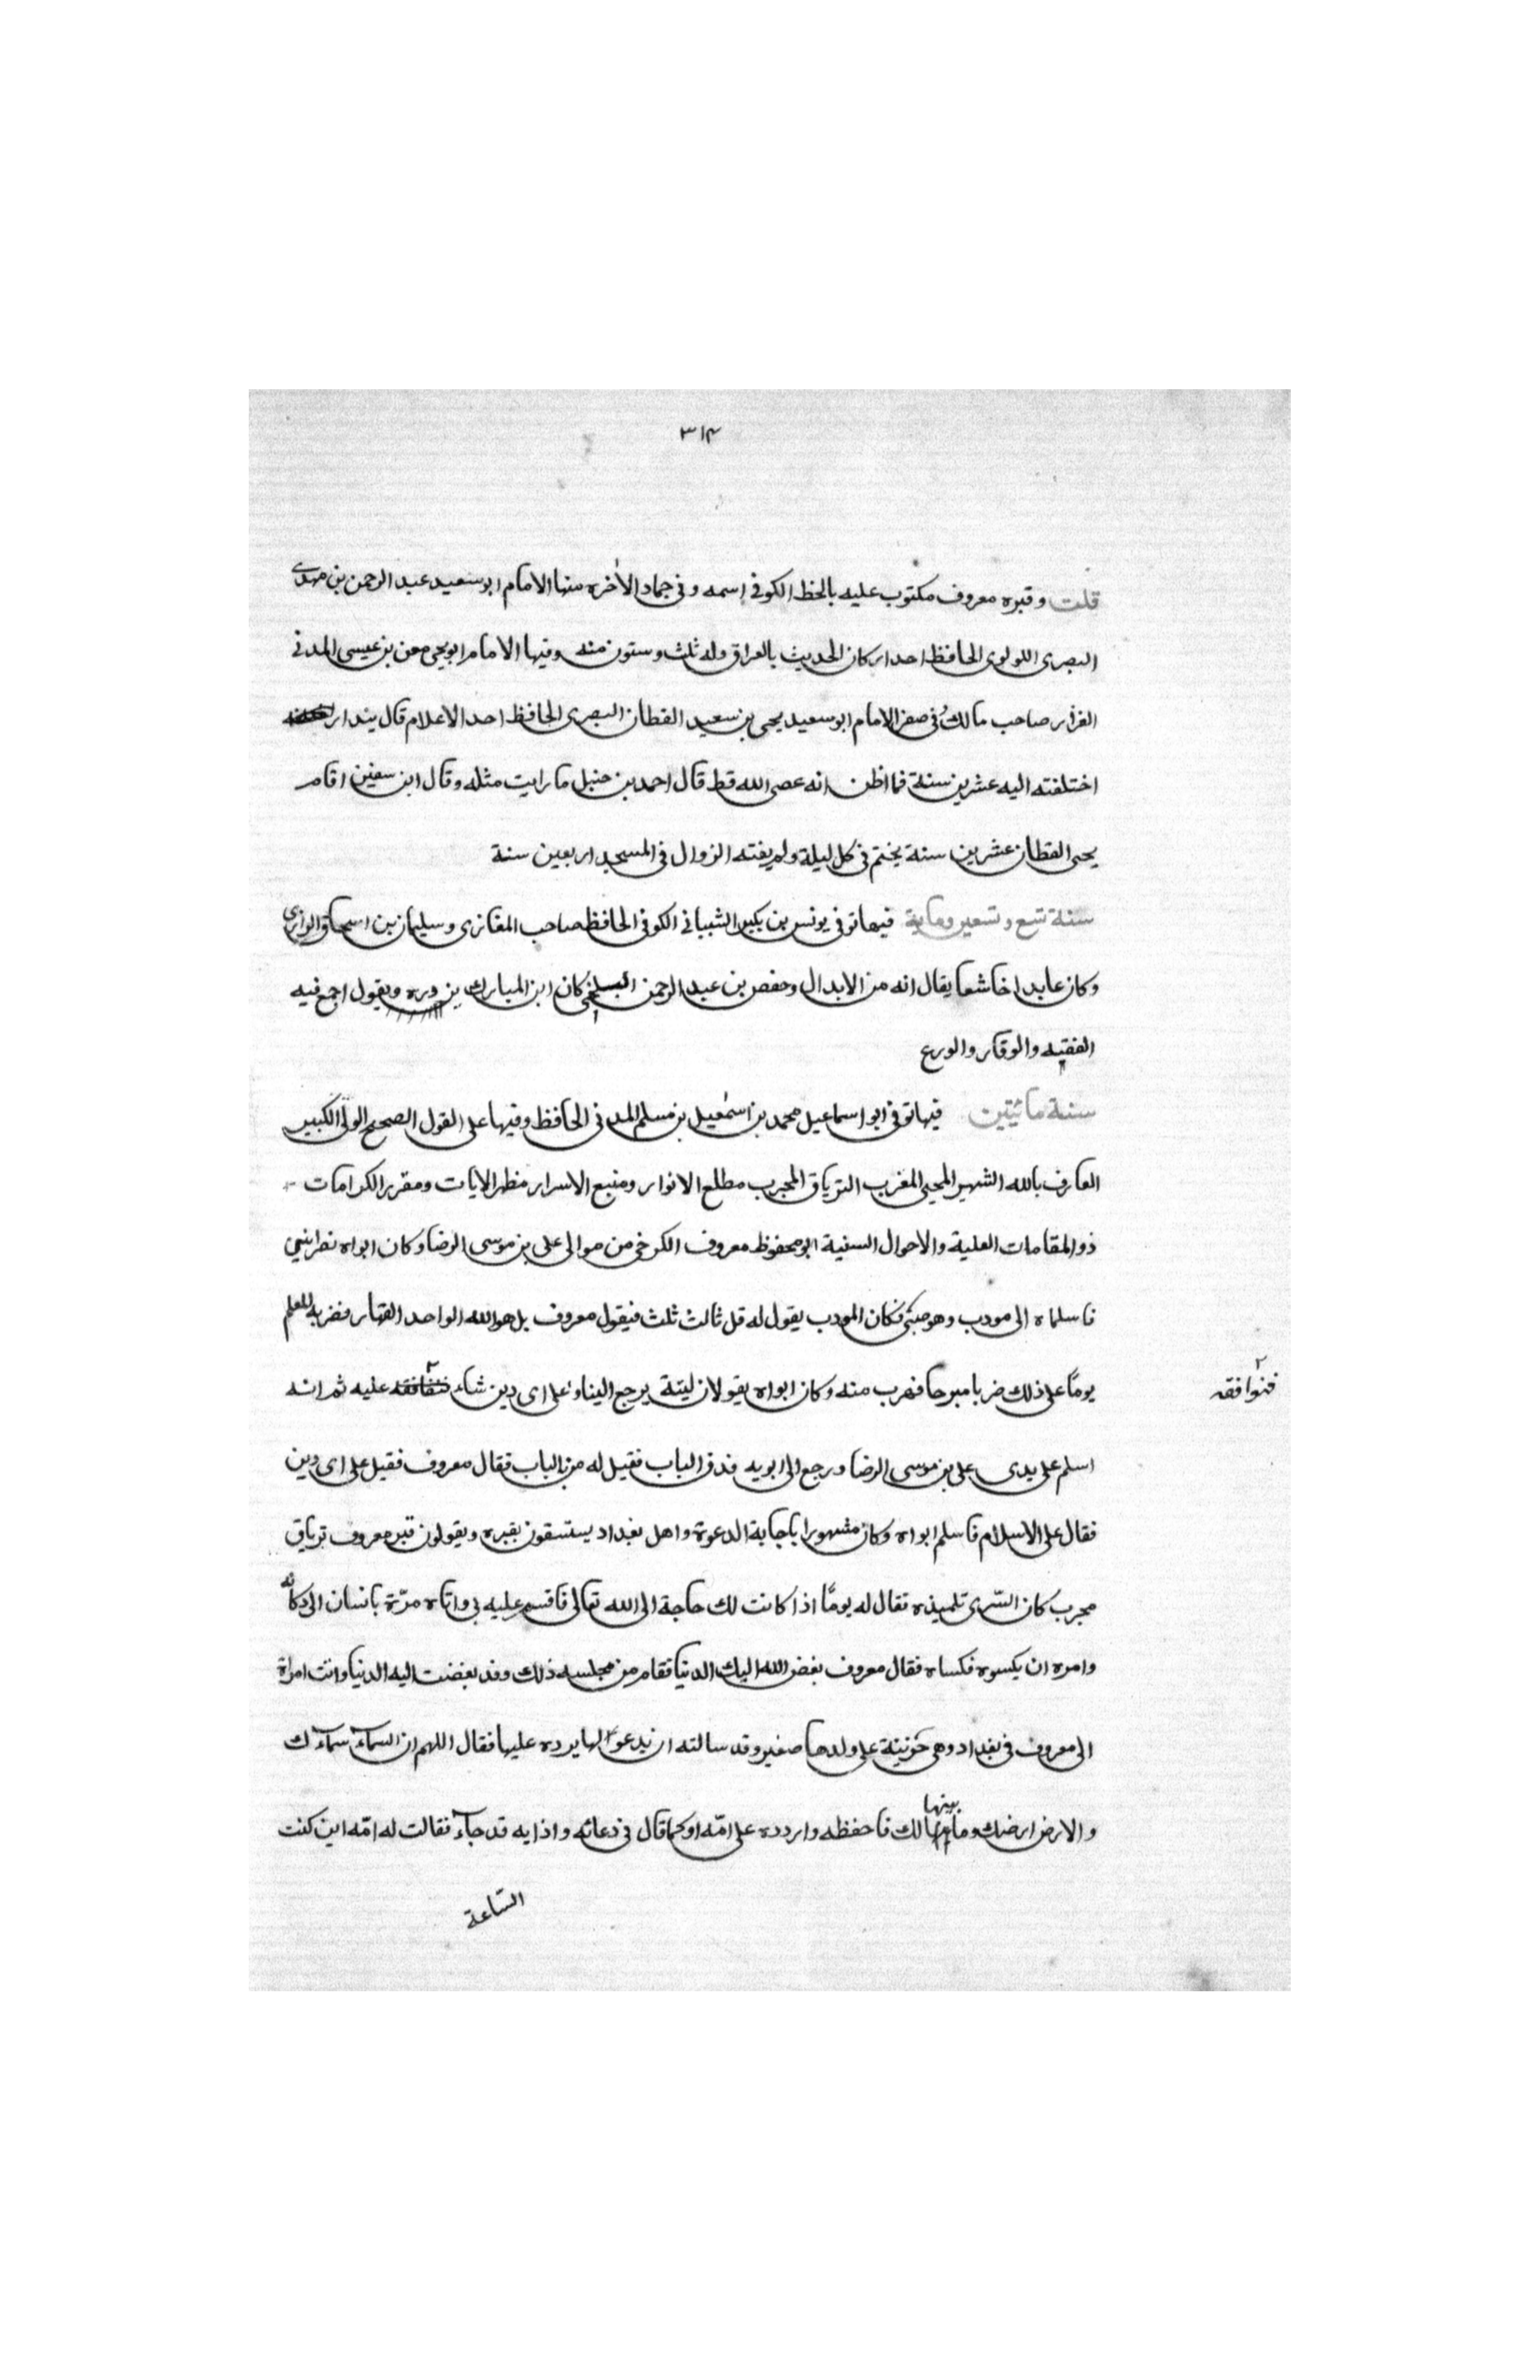 ٣١٤
قلت وقبره معروف مكتوب عليه بالخط الكوفى اسمه وفى جماد الاخره منها الامام ابو سعيد عبد الرحمن بن مهدى
البصرى اللولوى الحافظ احد اركان الحديث بالعراق وله ثلث وستون منه وفيها الامام ابو يحيى معن بن عيسى المدنى
القزاز صاحب مالك فى صفر الامام ابو سعيد يحيى بن سعيد القطان البصرى الحافظ احد الاعلام قال بندار
اختلفته اليه عشرين سنة فما اظن انه عصى الله قط قال احمد بن حنبل ما رايت مثله وقال ابن سفين اقام
يحيى القطان عشرين سنة يختم فى كل ليلة ولم يفته الزوال فى المسجد اربعين سنة
سنة تسع وتسعين وماية فيها توفى يونس بن بكير الشيبانى الكوفى الحافظ صاحب المغازى وسليمان بن اسحاق الرازى
وكان عابدا خاشعا يقال انه من الابدال وحفص بن عبد الرحمن البلخى كان ابن المبارك يزدره ويقول اجمع فيه
الفقيه والوقار والورع
سنة مائتين فيها توفى ابو اسماعيل محمد بن اسمعيل بن مسلم المدنى الحافظ وفيها على القول الصحيح الولى الكبير
العارف بالله الشهير المحيى المغرب الترياق المجرب مطلع الانوار ومنبع الاسرار مظهر الايات ومقرر الكرامات
ذو المقامات العلية والاحوال السنية ابو محفوظ معروف الكرخى من موالى على بن موسى الرضا وكان ابواه نصرانيين
فاسلماه الى مودب وهو صبى فكان المودب يقول له قل ثالث ثلث فيقول معروف بل هو الله الواحد القهار فضربه المعلم
يومًا على ذلك ضربا مبرحا فهرب منه وكان ابواه يقولان ليته يرجع الينا وعلى اى دين شاء فنوافقه عليه ثم انه
اسلم على يدى على بن موسى الرضا ورجع الى ابويه فدق الباب فقيل له من بالباب فقال معروف فقيل على اى دين
فقال على الاسلام فاسلم ابواه وكان مشهورا باجابة الدعوة واهل بغداد يستسقون بقبره ويقولون قبر معروف ترياق
مجرب كان السّرى تلميذه فقال له يومًا اذا كانت لك حاجة الى الله تعالى فاقسم عليه بى واتاه مرّة بانسان الى دكانه
وامره ان يكسوه فكساه فقال معروف بغض الله اليك الدنيا فقام من مجلسه ذلك وقد بغضت اليه الدنيا واتت امراة
الى معروف فى بغداد وهى حزينة على ولدها صغير وقد سالته ان يدعو لها يرده عليها فقال اللهم ان السماء سماءك
والارض ارضك وما بينها لك فاحفظه واردده على امّه او كما قال فى دعائه واذا به قد جاء فقالت له امّه اين كنت
السّاعة
فنوافقه